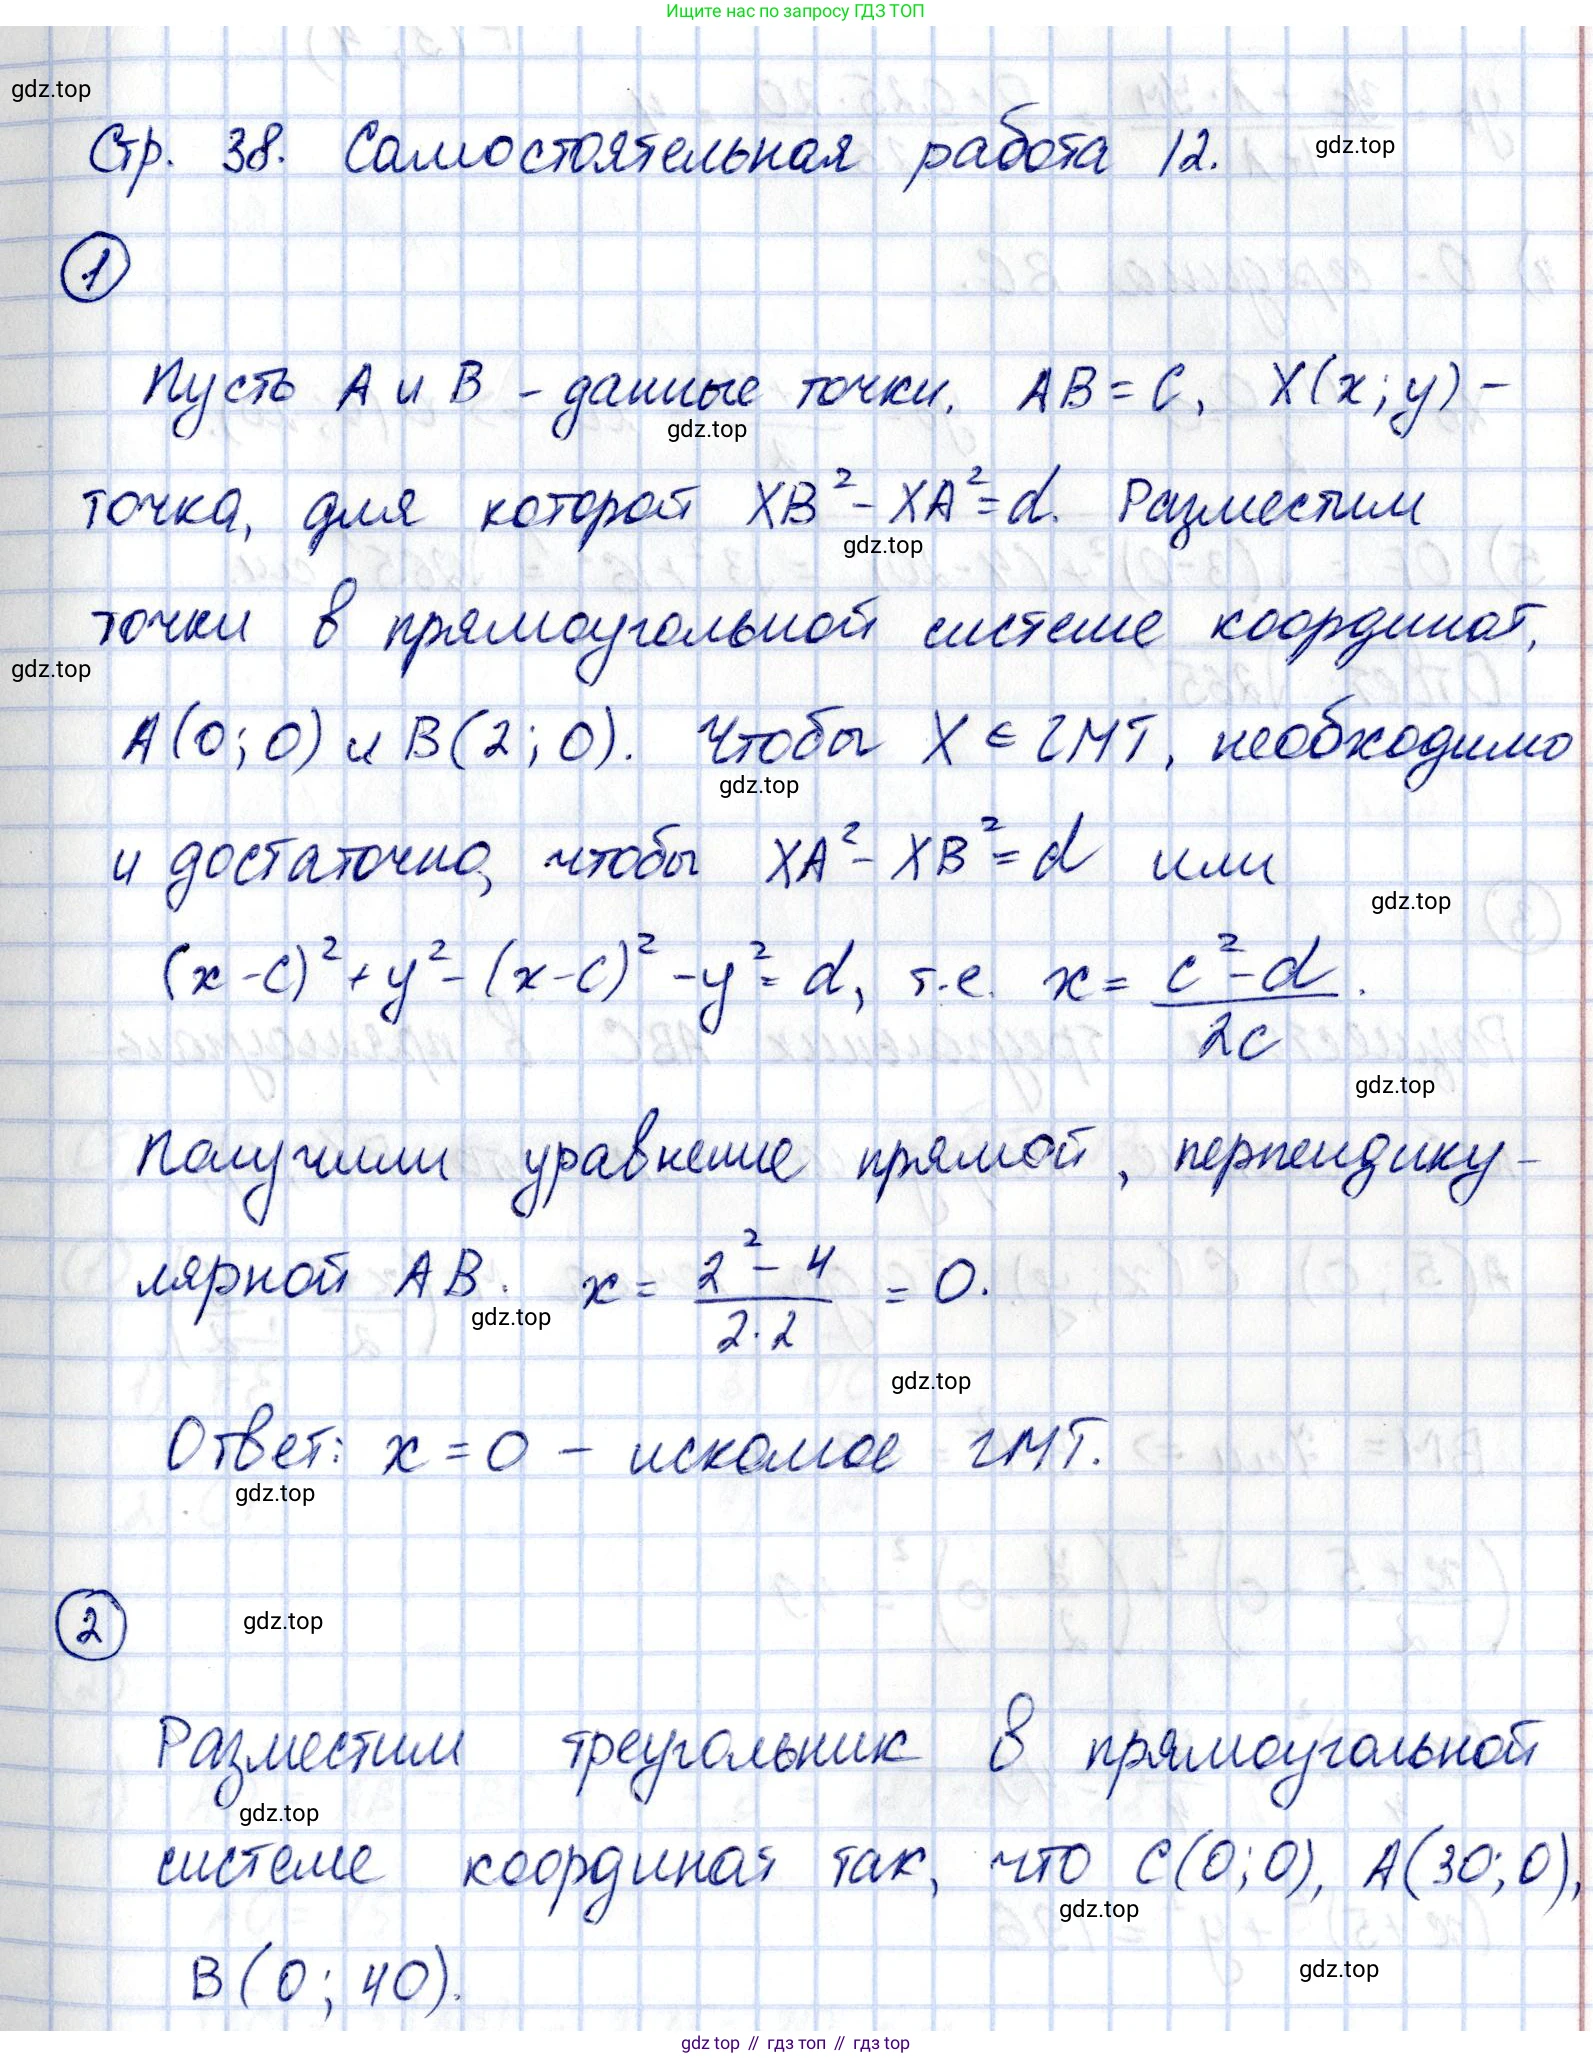 Ищите нас по запросу ГДЗ ТОП
gdz.top
Стр. 38. Самостоятельная работа 12.
gdz.top
1
Пусть A и B - данные точки. AB = C, X(x; y) -
gdz.top
точка, для которой XB² - XA² = d. Разместим
gdz.top
точки в прямоугольной системе координат,
gdz.top
A(0; 0) и B(2; 0). Чтобы X ∈ ГМТ, необходимо
gdz.top
и достаточно, чтобы XA² - XB² = d или
gdz.top
(x - c)² + y² - (x - c)² - y² = d, т.е. x = (c² - d)/2c.
gdz.top
Получили уравнение прямой, перпендику-
лярной AB. x = (2² - 4)/(2·2) = 0.
gdz.top
gdz.top
Ответ: x = 0 - искомое ГМТ.
gdz.top
2
gdz.top
Разместим треугольник в прямоугольной
gdz.top
системе координат так, что C(0; 0), A(30; 0),
gdz.top
B(0; 40).
gdz.top
gdz top // гдз топ // gdz top